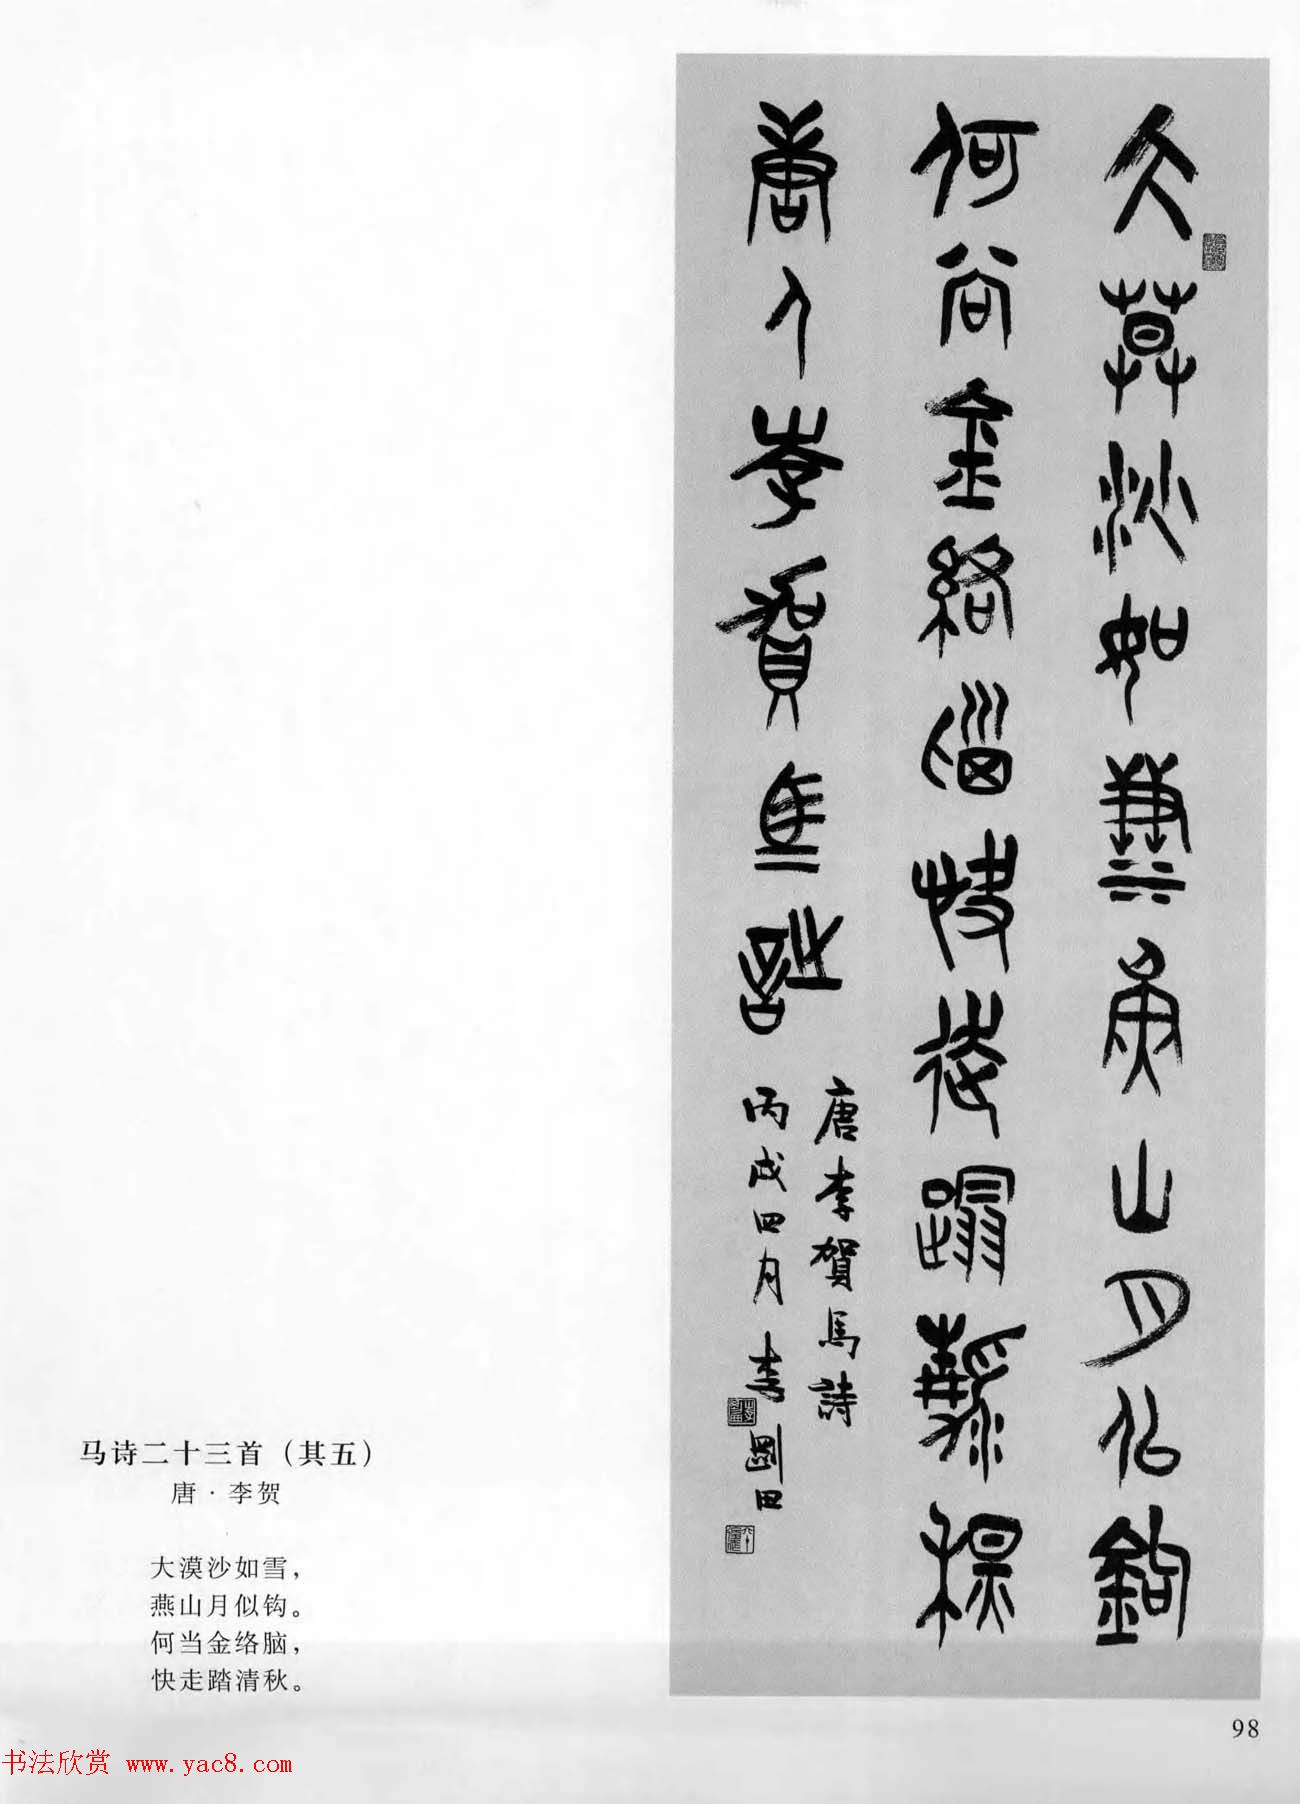 大莫沙如雪燕山月佀鉤
何当金絡𡿺快走蹋
唐人李賀馬詩
唐李賀馬詩
丙戌四月李剛田
马诗二十三首（其五）
唐·李贺
大漠沙如雪，
燕山月似钩。
何当金络脑，
快走踏清秋。
98
书法欣赏 www.yac8.com